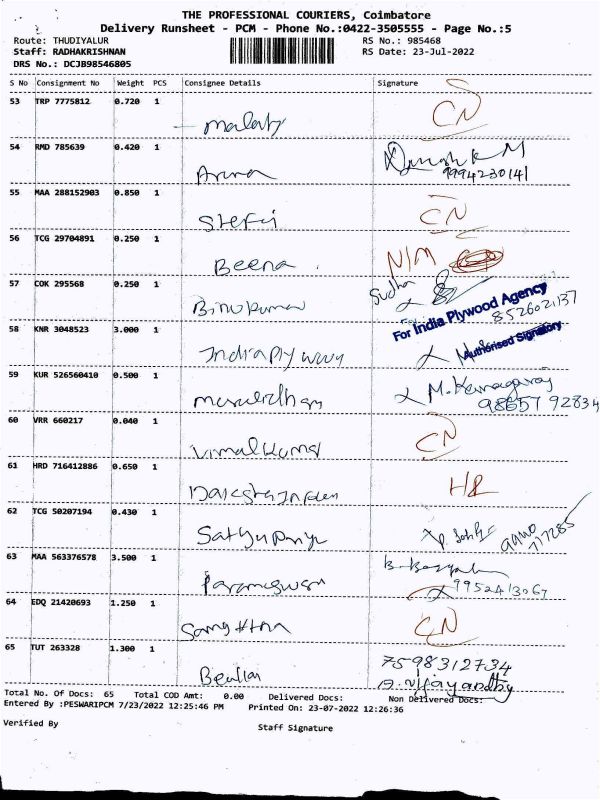 THE PROFESSIONAL COURIERS, Coimbatore
Delivery Runsheet - PCM - Phone No.:0422-3505555 - Page No.:5
Route: THUDIYALUR RS No.: 985468
Staff: RADHAKRISHNAN RS Date: 23-Jul-2022
DRS No.: DCJB98546805
S No Consignment No Weight PCS Consignee Details Signature
53 TRP 7775812 0.720 1
Malaty CN
54 RMD 785639 0.420 1
Aruna 9994230141
55 MAA 288152903 0.850 1
Stefi CN
56 TCG 29704891 0.250 1
Beena N/M
57 COK 295568 0.250 1 Sudha
Binukumar
For India Plywood Agency
8526021137
58 KNR 3048523 3.000 1
Authorised Signatory
59 KUR 526560410 0.500 1
M. Kanagaraj
98657 92834
60 VRR 660217 0.040 1
Vimalkumar CN
61 HRD 716412886 0.650 1
62 TCG 50207194 0.430 1
Sathyapriya
63 MAA 563376578 3.500 1
Parameswari 9952413067
64 EDQ 21420693 1.250 1
Sangeetha CN
65 TUT 263328 1.300 1 7598312734
Beulla
Total No. Of Docs: 65 Total COD Amt: 0.00 Delivered Docs: Non Delivered Docs:
Entered By :PESWARIPCM 7/23/2022 12:25:46 PM Printed On: 23-07-2022 12:26:36
Verified By
Staff Signature